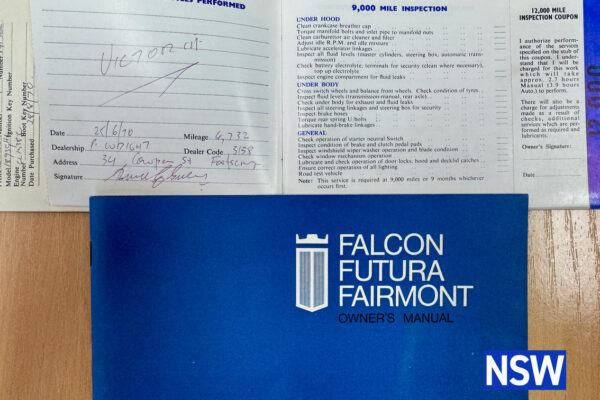 PERFORMED
VICTOR
Date 25/6/70 Mileage 4,732
Dealership P. WRIGHT Dealer Code 3158
Address 34 Cowper St Footscray
Signature
Ignition Key Number
Boot Key Number
Engine Number
Date Purchased
9,000 MILE INSPECTION
UNDER HOOD
Clean crankcase breather cap
Torque manifold bolts and inlet pipe to manifold nuts
Clean carburettor air cleaner and filter
Adjust idle R.P.M. and idle mixture
Lubricate accelerator linkages
Inspect all fluid levels (master cylinders, steering box, automatic transmission)
Check battery electrolyte, terminals for security (clean where necessary),
top up electrolyte
Inspect engine compartment for fluid leaks
UNDER BODY
Cross switch wheels and balance front wheels. Check condition of tyres
Inspect fluid levels (transmission-manual, rear axle)
Check under body for exhaust and fluid leaks
Inspect all steering linkages and steering box for security
Inspect brake hoses
Torque rear spring U bolts
Lubricate hand-brake linkages
GENERAL
Check operation of starter neutral Switch
Inspect condition of brake and clutch pedal pads
Inspect windshield wiper/washer operation and blade condition
Check window mechanism operation
Lubricate and check operation of door locks, hood and decklid catches
Ensure correct operation of all lighting
Road test vehicle
Note: This service is required at 9,000 miles or 9 months whichever
occurs first.
12,000 MILE
INSPECTION COUPON
I authorize performance
of the services
specified on the stub of
this coupon. I understand
that I will be
charged for this work
which will take
approx. 2.7 hours
Manual (3.9 hours
Auto.) to perform.
There will also be a
charge for adjustments
made as a result of
checks, additional
services which are performed
as required and
lubricants.
Owner's Signature:
Date
FALCON
FUTURA
FAIRMONT
OWNER'S MANUAL
NSW